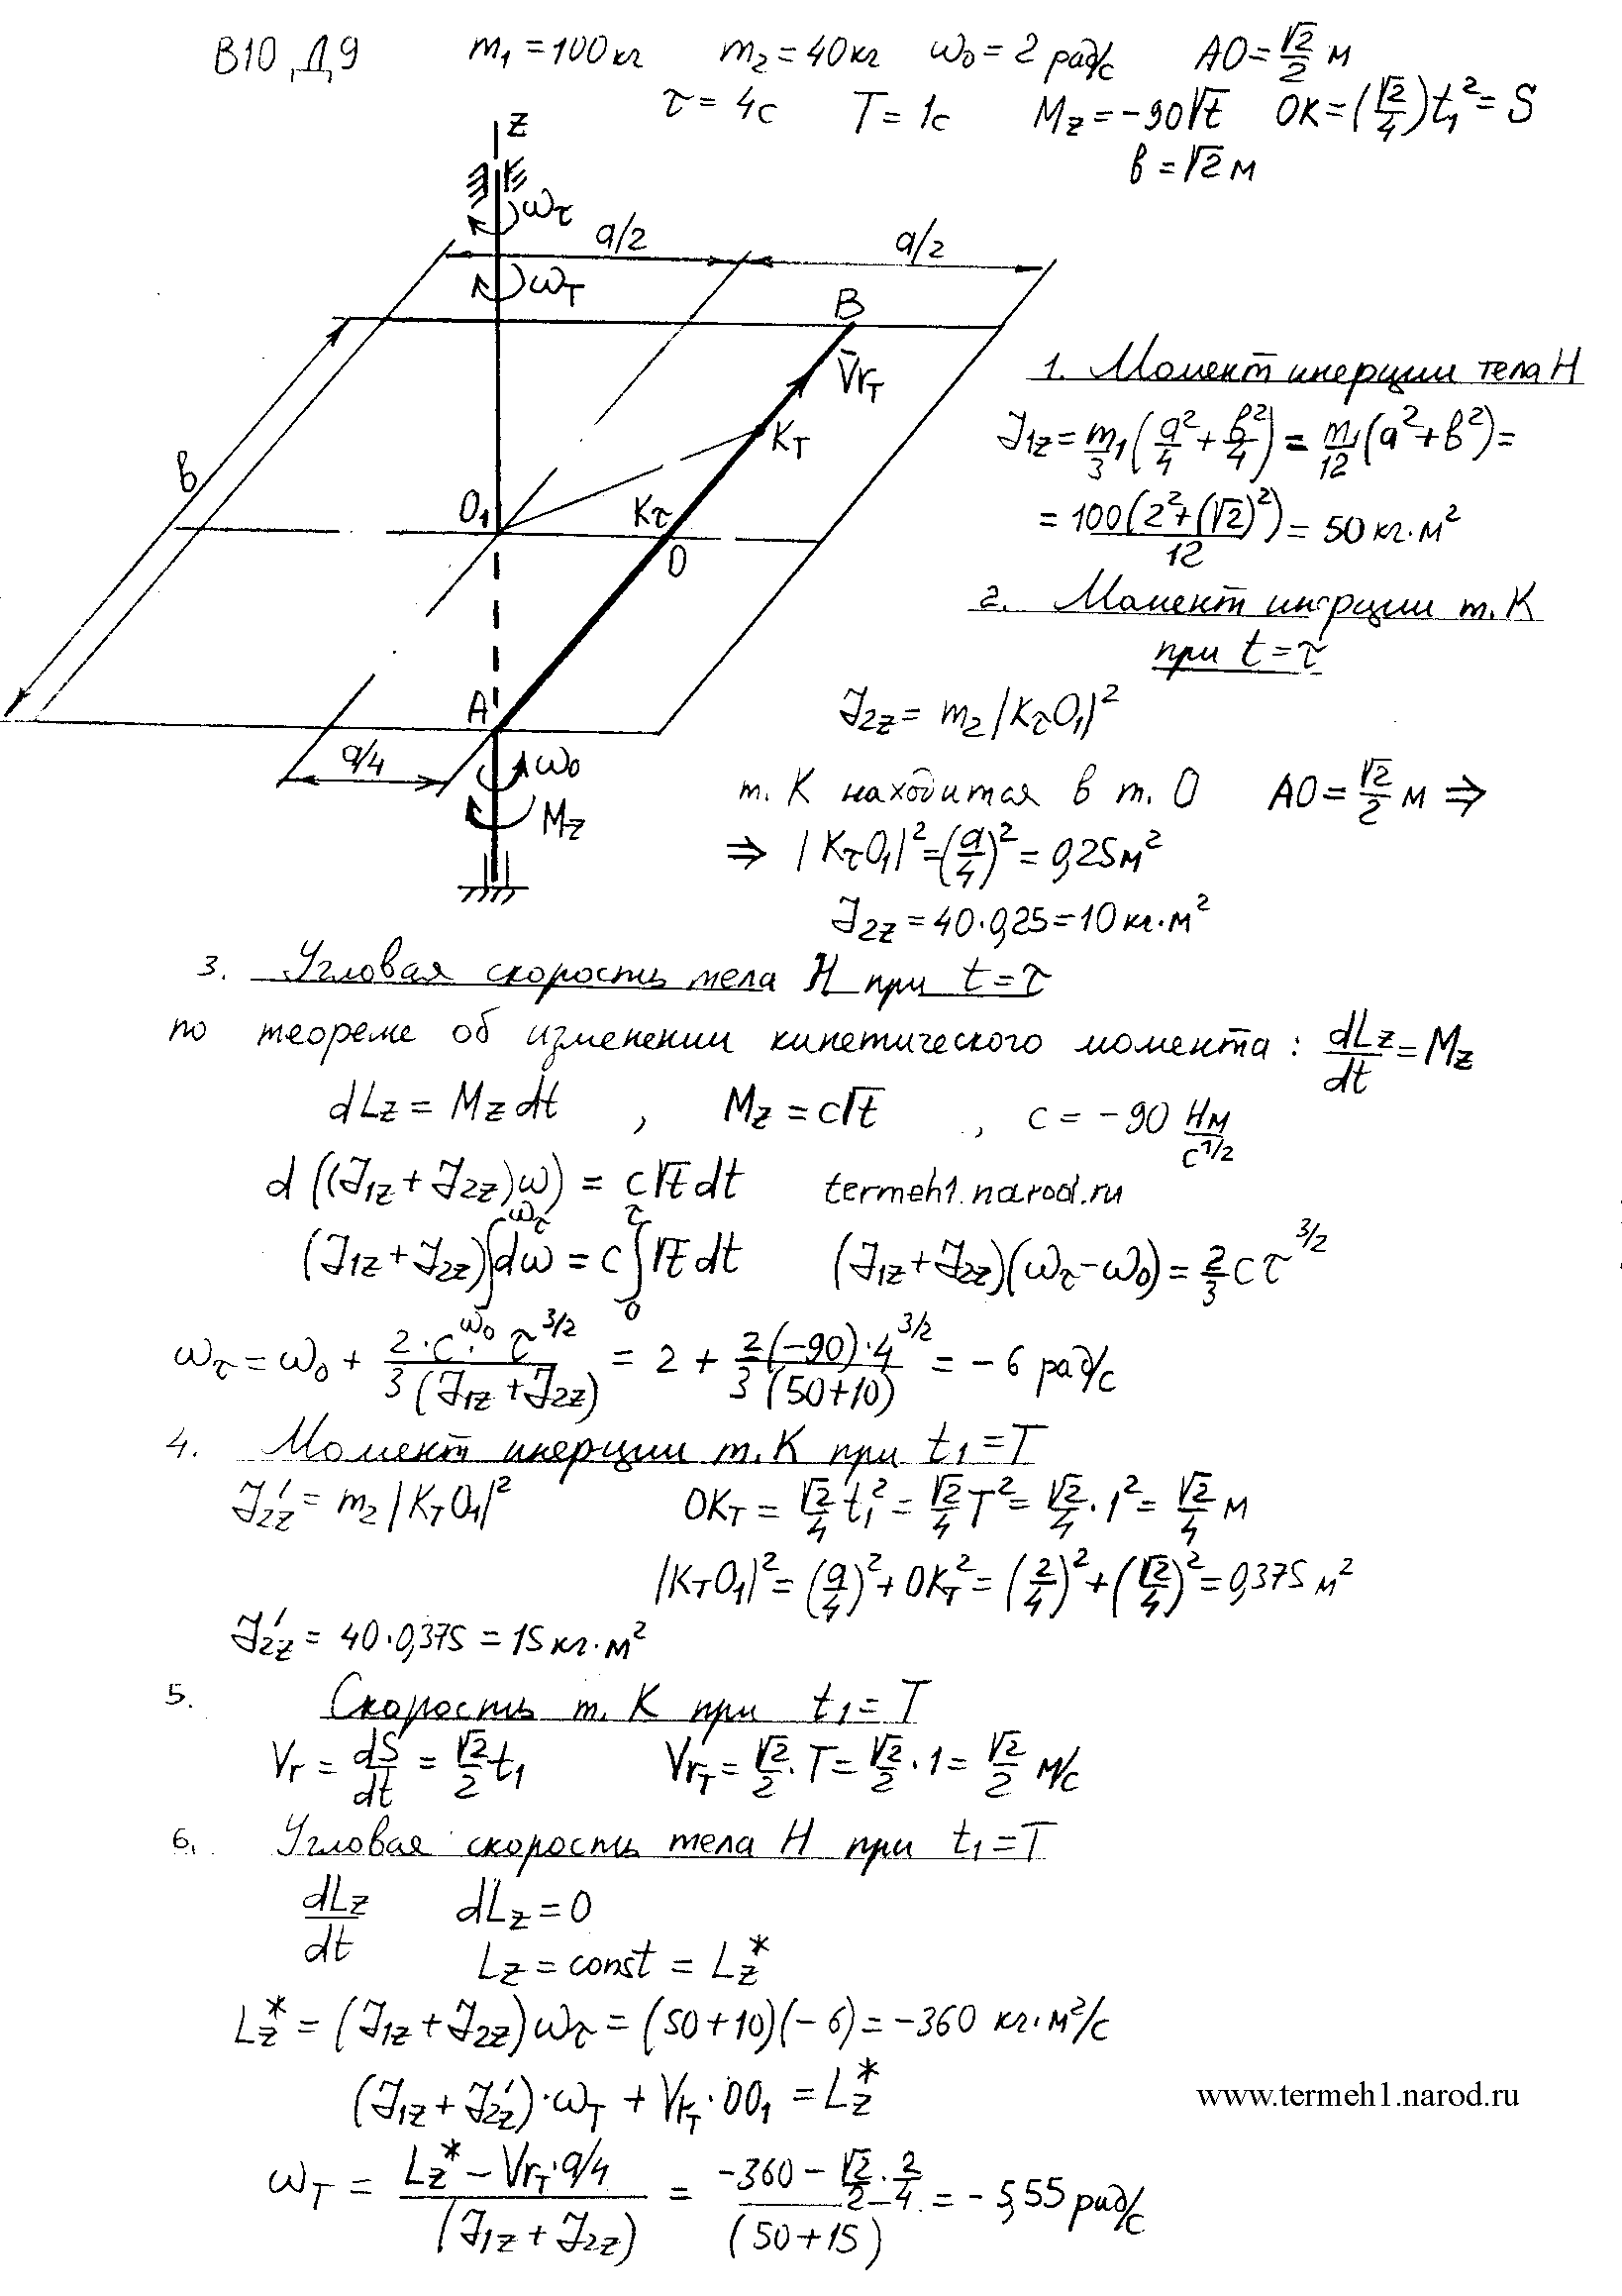 В10, Д9 m₁ = 100кг m₂ = 40кг ω₀ = 2 рад/с АО = √2/2 м
τ = 4с T = 1с M_z = -90√t ОК = (√2/4)t₁² = S
в = √2 м
z
ω_τ
a/2 a/2
ω_T
B
V̄r_T
1. Момент инерции тела Н
K_T
J₁z = m₁/3 (a²/4 + в²/4) = m₁/12 (a² + в²) =
в
O₁ K_τ
= 100(2² + (√2)²)/12 = 50 кг·м²
O
2. Момент инерции т. К
при t = τ
A
J₂z = m₂ |K_τO₁|²
a/4 ω₀
т. К находится в т. О АО = √2/2 м ⇒
M_z
⇒ |K_τO₁|² = (a/4)² = 0,25м²
J₂z = 40·0,25 = 10 кг·м²
3. Угловая скорость тела Н при t = τ
по теореме об изменении кинетического момента: dLz/dt = Mz
dLz = Mz dt , Mz = c√t , c = -90 Нм/с^1/2
d((J₁z + J₂z)ω) = c√t dt termeh1.narod.ru
(J₁z + J₂z)∫_ω₀^ω_τ dω = c∫₀^τ √t dt (J₁z + J₂z)(ω_τ - ω₀) = 2/3 c τ^3/2
ω_τ = ω₀ + 2·c·τ^3/2 / 3(J₁z + J₂z) = 2 + 2(-90)·4^3/2 / 3(50+10) = -6 рад/с
4. Момент инерции т. К при t₁ = T
J₂z' = m₂ |K_TO₁|² OK_T = √2/4 t₁² = √2/4 T² = √2/4 · 1² = √2/4 м
|K_TO₁|² = (a/4)² + OK_T² = (2/4)² + (√2/4)² = 0,375 м²
J₂z' = 40·0,375 = 15 кг·м²
5. Скорость т. К при t₁ = T
Vr = dS/dt = √2/2 t₁ Vr_T = √2/2 · T = √2/2 · 1 = √2/2 м/с
6. Угловая скорость тела Н при t₁ = T
dLz/dt dLz = 0
Lz = const = Lz*
Lz* = (J₁z + J₂z)ω_τ = (50+10)(-6) = -360 кг·м²/с
(J₁z + J₂z')·ω_T + Vr_T·OO₁ = Lz*
www.termeh1.narod.ru
ω_T = Lz* - Vr_T·a/4 / (J₁z + J₂z) = -360 - √2/2 · 2/4 / (50+15) = -5,55 рад/с